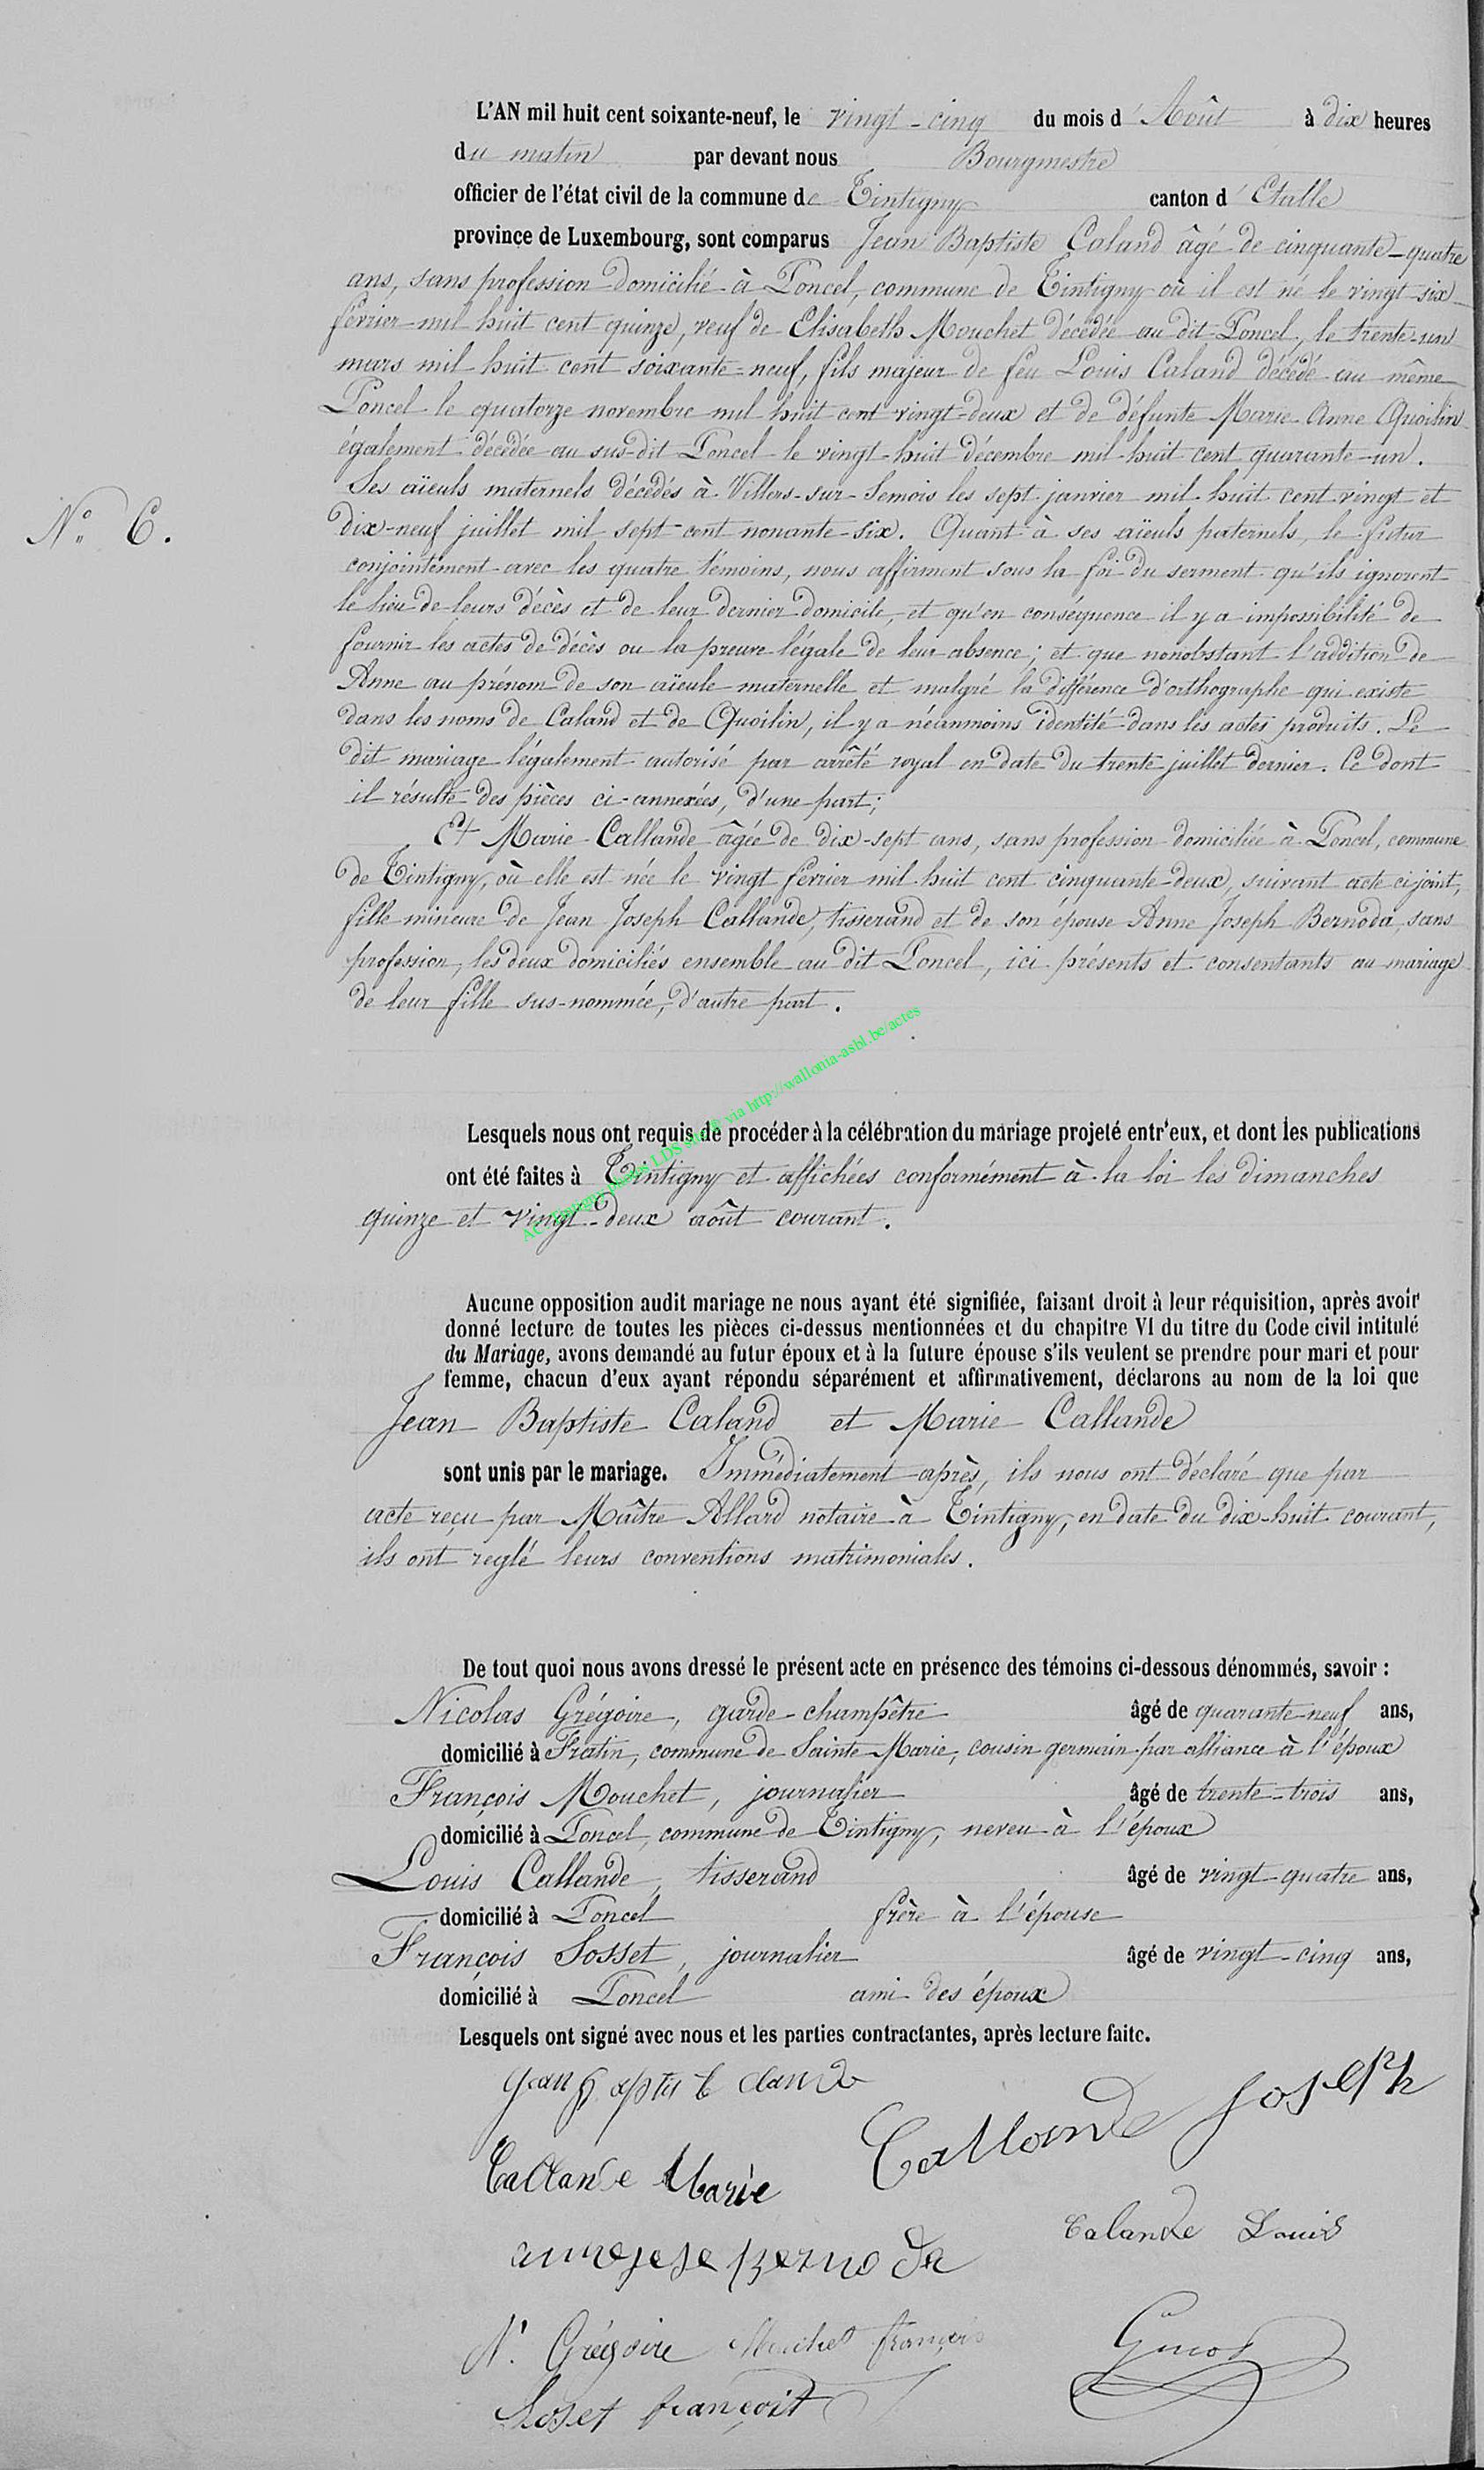 L'AN mil huit cent soixante-neuf, le vingt-cinq du mois d'Août à dix heures
du matin par devant nous Bourgmestre
officier de l'état civil de la commune de Tintigny canton d'Etalle
province de Luxembourg, sont comparus Jean Baptiste Caland âgé de cinquante-quatre
ans, sans profession domicilié à Poncel, commune de Tintigny où il est né le vingt six
février mil huit cent quinze, veuf de Elisabeth Mouchet décédée au dit Poncel, le trente-un
mars mil huit cent soixante-neuf, fils majeur de feu Louis Caland décédé au même
Poncel le quatorze novembre mil huit cent vingt-deux et de défunte Marie Anne Quoilin
également décédée au sus-dit Poncel le vingt-huit décembre mil huit cent quarante-un.
Ses aïeuls maternels décédés à Villers-sur-Semois les sept janvier mil huit cent vingt et
dix-neuf juillet mil sept cent nonante-six. Quant à ses aïeuls paternels, le futur
conjointement avec les quatre témoins, nous affirment sous la foi du serment qu'ils ignorent
le lieu de leurs décès et de leur dernier domicile, et qu'en conséquence il y a impossibilité de
fournir les actes de décès ou la preuve légale de leur absence; et que nonobstant l'addition de
Anne au prénom de son aïeule maternelle et malgré la différence d'orthographe qui existe
dans les noms de Caland et de Quoilin, il y a néanmoins identité dans les actes produits. Le
dit mariage légalement autorisé par arrêté royal en date du trente juillet dernier. Ce dont
il résulte des pièces ci-annexées, d'une part;
Et Marie Callande âgée de dix-sept ans, sans profession domiciliée à Poncel, commune
de Tintigny, où elle est née le vingt février mil huit cent cinquante-deux, suivant acte ci joint,
fille mineure de Jean Joseph Callande, tisserand et de son épouse Anne Joseph Bernoda, sans
profession, les deux domiciliés ensemble au dit Poncel, ici présents et consentants au mariage
de leur fille sus-nommée, d'autre part.
N° 6.
Lesquels nous ont requis de procéder à la célébration du mariage projeté entr'eux, et dont les publications
ont été faites à Tintigny et affichées conformément à la loi les dimanches
quinze et vingt-deux août courant.
via http://wallonia-asbl.be/actes
Aucune opposition audit mariage ne nous ayant été signifiée, faisant droit à leur réquisition, après avoir
donné lecture de toutes les pièces ci-dessus mentionnées et du chapitre VI du titre du Code civil intitulé
du Mariage, avons demandé au futur époux et à la future épouse s'ils veulent se prendre pour mari et pour
femme, chacun d'eux ayant répondu séparément et affirmativement, déclarons au nom de la loi que
Jean Baptiste Caland et Marie Callande
sont unis par le mariage. Immédiatement après, ils nous ont déclaré que par
acte reçu par Maître Allard notaire à Tintigny, en date du dix-huit courant,
ils ont reglé leurs conventions matrimoniales.
De tout quoi nous avons dressé le présent acte en présence des témoins ci-dessous dénommés, savoir :
Nicolas Grégoire, garde-champêtre âgé de quarante-neuf ans,
domicilié à Fratin, commune de Sainte-Marie, cousin germain par alliance à l'époux
François Mouchet, journalier âgé de trente-trois ans,
domicilié à Poncel, commune de Tintigny, neveu à l'époux
Louis Callande, tisserand âgé de vingt-quatre ans,
domicilié à Poncel frère à l'épouse
François Sosset, journalier âgé de vingt-cinq ans,
domicilié à Poncel ami des époux
Lesquels ont signé avec nous et les parties contractantes, après lecture faite.
Callande Joseph
Callande Marie
Calande Louis
N. Grégoire Mouchet françois
Soset françoit